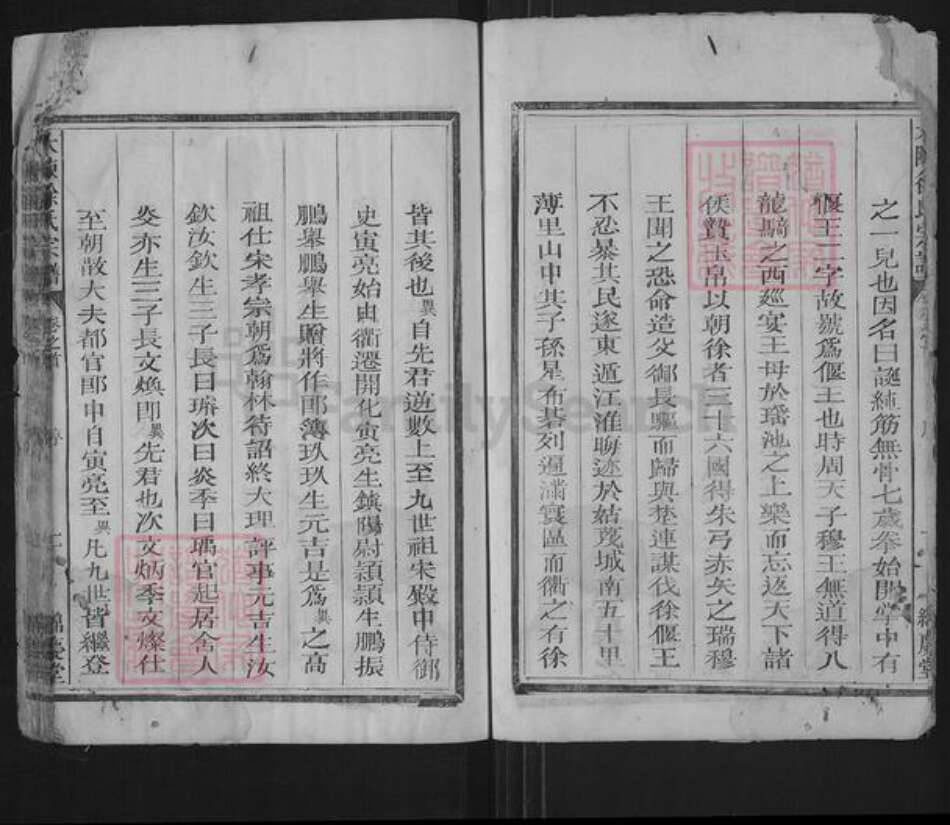 之一兒也因名曰誕純筋無骨七歲拳始開掌中有
偃王二字故號爲偃王也時周天子穆王無道得八
龍騎之西廵宴王母於瑤池之上樂而忘返天下諸
侯贄玉帛以朝徐者三十六國得朱弓赤矢之瑞穆
王聞之恐命造父御長驅而歸與楚連謀伐徐偃王
不忍暴其民遂東遁江淮晦迹於姑蔑城南五十里
薄里山中其子孫星布碁列遍滿寰區而衢之有徐
皆其後也異自先君逆數上至九世祖宋殿中侍御
史寅亮始由衢遷開化寅亮生鎮陽尉頴頴生鵬振
鵬舉鵬舉生贈將作郎簿玖玖生元吉是爲異之高
祖仕宋孝宗朝爲翰林待詔終大理評事元吉生汝
欽汝欽生三子長曰琦次曰炎季曰瑀官起居舍人
炎亦生三子長文煥卽異先君也次文炳季文燦仕
至朝散大夫都官郎中自寅亮至異凡九世皆繼登
徐氏宗譜
FamilySearch